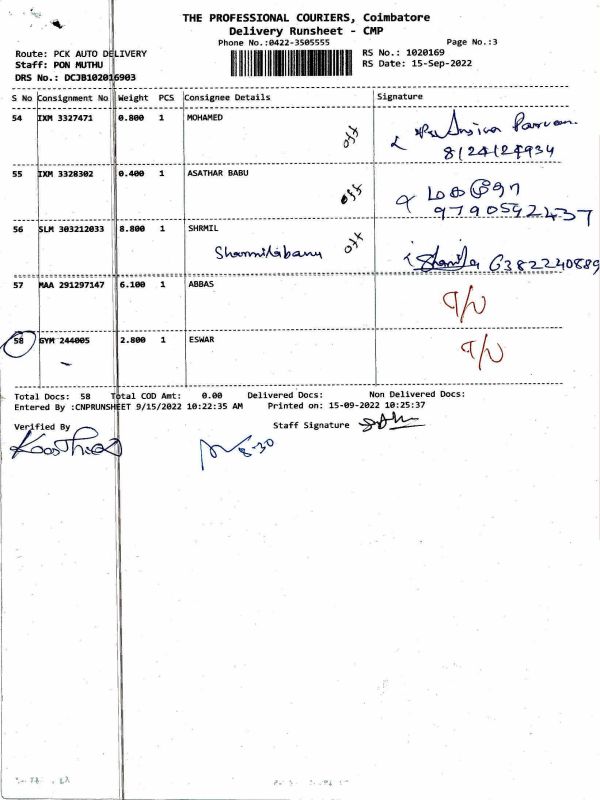 THE PROFESSIONAL COURIERS, Coimbatore
Delivery Runsheet - CMP
Phone No.:0422-3505555 Page No.:3
Route: PCK AUTO DELIVERY RS No.: 1020169
Staff: PON MUTHU RS Date: 15-Sep-2022
DRS No.: DCJB102016903
S No Consignment No Weight PCS Consignee Details Signature
54 IXM 3327471 0.800 1 MOHAMED off
8124124934
55 IXM 3328302 0.400 1 ASATHAR BABU off
9790592437
56 SLM 303212033 8.800 1 SHRMIL off
Sharmilabanu Sharmila 6382240889
57 MAA 291297147 6.100 1 ABBAS
58 GYM 244005 2.800 1 ESWAR
Total Docs: 58 Total COD Amt: 0.00 Delivered Docs: Non Delivered Docs:
Entered By :CNPRUNSHEET 9/15/2022 10:22:35 AM Printed on: 15-09-2022 10:25:37
Verified By Staff Signature
8-30